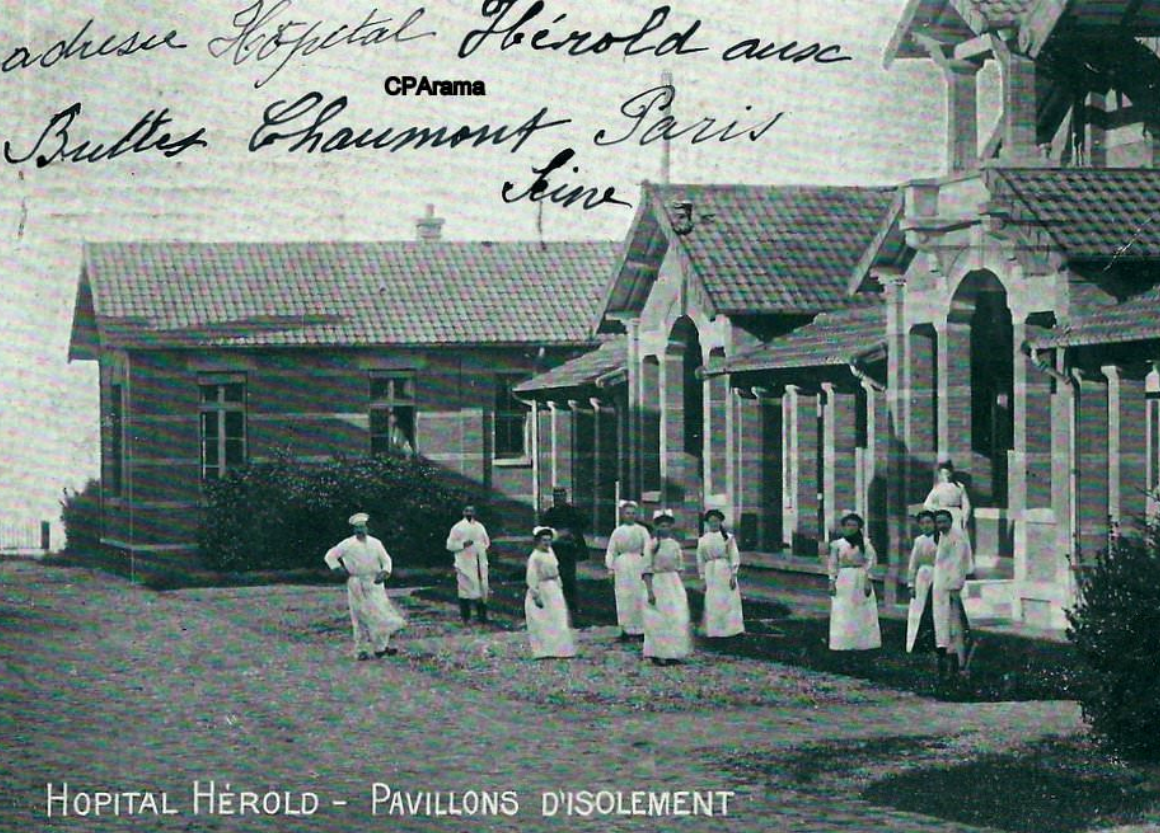 adresse Hôpital Hérold aux
CPArama
Buttes Chaumont Paris
Seine
HOPITAL HÉROLD - PAVILLONS D'ISOLEMENT